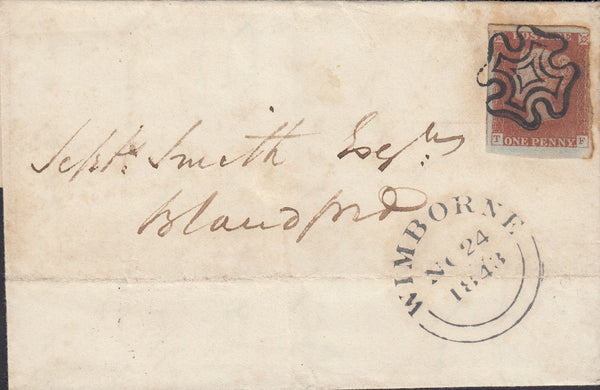 POSTAGE
T F
ONE PENNY
Septs. Smith Esqre.
Blandford
WIMBORNE
24
1843